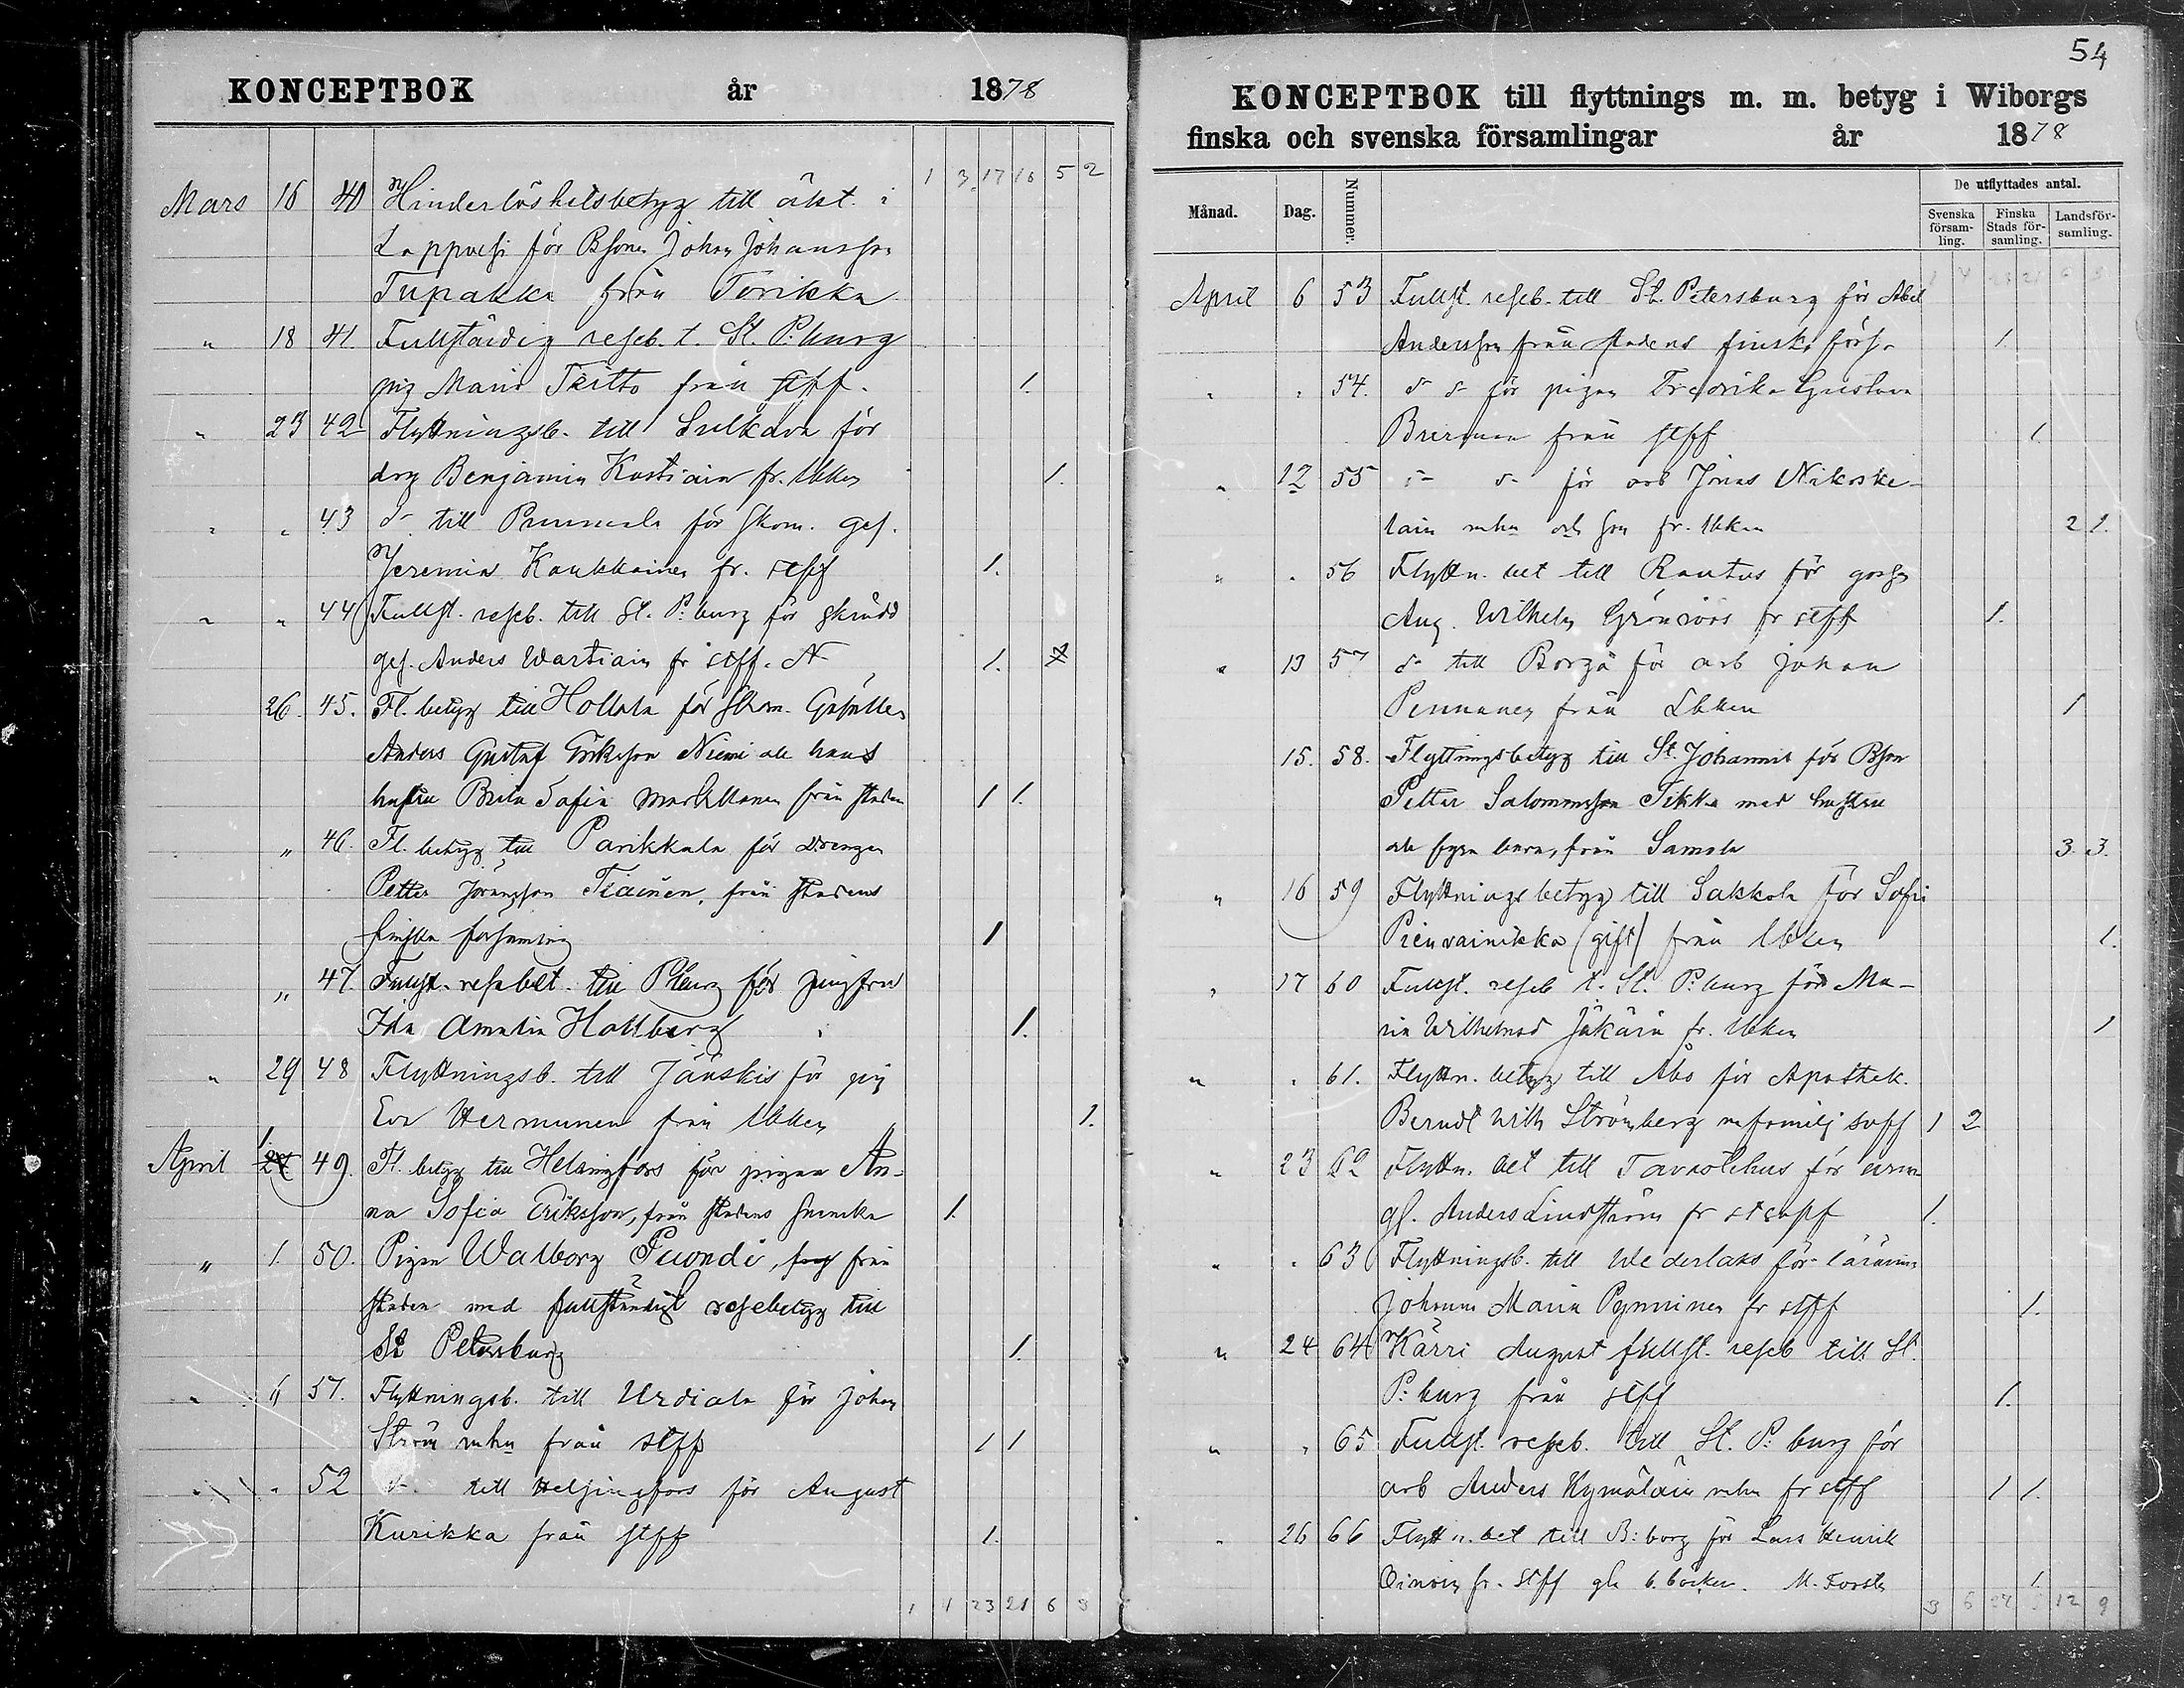 54
KONCEPTBOK år 1878
1 3 17 16 5 2
Mars 16 40 Hinderlöshetsbetyg till äkt. i
Lappvesi för Bsonen Johan Johansson
Tupakka från Torikka
" 18 41. Fullständig reseb. t. St. P:burg
pig Maria från stff. 1.
" 23 42 Flyttningsb. till Sulkava för
drg Benjamin Kostiain fr. lkken 1.
" " 43 d:o till Pummala för skom. ges.
Jeremias Kaukkainen fr. stff 1.
" " 44 Fullst. reseb. till St. P:burg för skrädd
ges. Anders Wartiain fr stff. 1.
26. 45. Fl. betyg till Hollola för skom. Gesällen
Anders Gustaf Eriksson Niemi och hans
hustru Brita Sofia från staden 1 1.
" 46. Fl. betyg till Parikkala för Drengen
Petter Göransson Tiainen, från stadens
finska församling 1
" 47. Fullst. resebet. till P:burg för jungfrun
Ida Amalia Hallberg 1.
" 29 48 Flyttningsb. till Jääskis för pig
Eva Hermunen från lkken 1.
April 1. 49. Fl. betyg till Helsingfors för pigan An-
na Sofia Eriksson, från stadens svenska 1.
" 1. 50. Pigan Walborg från
staden med fullständigt resebetyg till
St Petersburg 1.
" 6 51. Flyttningsb. till Urdiala för Johan
Ström mhu från stff 1 1
" " 52 d:o till Helsingfors för August
Kurikka från stff 1.
1 4 23 21 6 3
KONCEPTBOK till flyttnings m. m. betyg i Wiborgs
finska och svenska församlingar år 1878
Månad. Dag. Nummer. De utflyttades antal.
Svenska församling. Finska Stads församling. Landsförsamling.
April 6 53 Fullst. reseb. till St. Petersburg för Abel
Andersson från stadens finska förs. 1.
" " 54. d:o d:o för pigan Fredrika Gustava
från stff 1.
" 12 55 d:o d:o för arb Jonas Nikoske-
lain mhu och son fr. lkken 2 1.
" " 56 Flyttn. bet till Rautus för gossen
Aug. Wilhelm Grönroos fr stff 1.
" 13 57 d:o till Borgå för arb Johan
Pennanen från Lkken 1
15. 58. Flyttningsbetyg till St. Johannis för Bson
Petter Salomonsson Tikka med hustru
och fyra barn, från Samola 3. 3.
" 16 59 Flyttningsbetyg till Sakkola för Sofia
Pienrainikka (gift) från lkken 1.
" 17 60 Fullst. reseb t. St. P:burg för Ma-
ria Wilhelmsd Jäkärä fr. lkken 1
" " 61. Flyttn. betyg till Åbo för Apothek.
Berndt Wilh Strömberg m familj svff 1 2
" 23 62 Flyttn. bet till Tavastehus för
gl. Anders Lindström fr stsvff 1.
" " 63 Flyttningsb. till Wederlaks för lärarin
Johanna Maria Pynninen fr stff 1.
" 24 64 Kärri August fullst. reseb till St.
P:burg från stff 1.
" " 65 Fullst. reseb. till St. P:burg för
arb Anders Kymäläin mhu fr stff 1 1.
" 26 66 Flyttn. bet till B:borg för Lars Henrik
Oinoin fr. stff 1.
3 6 27 12 9